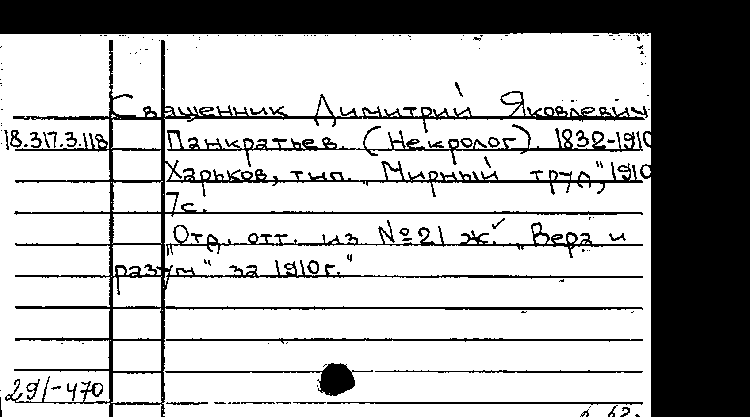 Священник Димитрий Яковлевич
18.317.3.118 Панкратьев. (Некролог). 1832-1910
Харьков, тип. „Мирный труд", 1910
7с.
"Отд. отт. из №21 ж. „Вера и
разум" за 1910г."
291-470